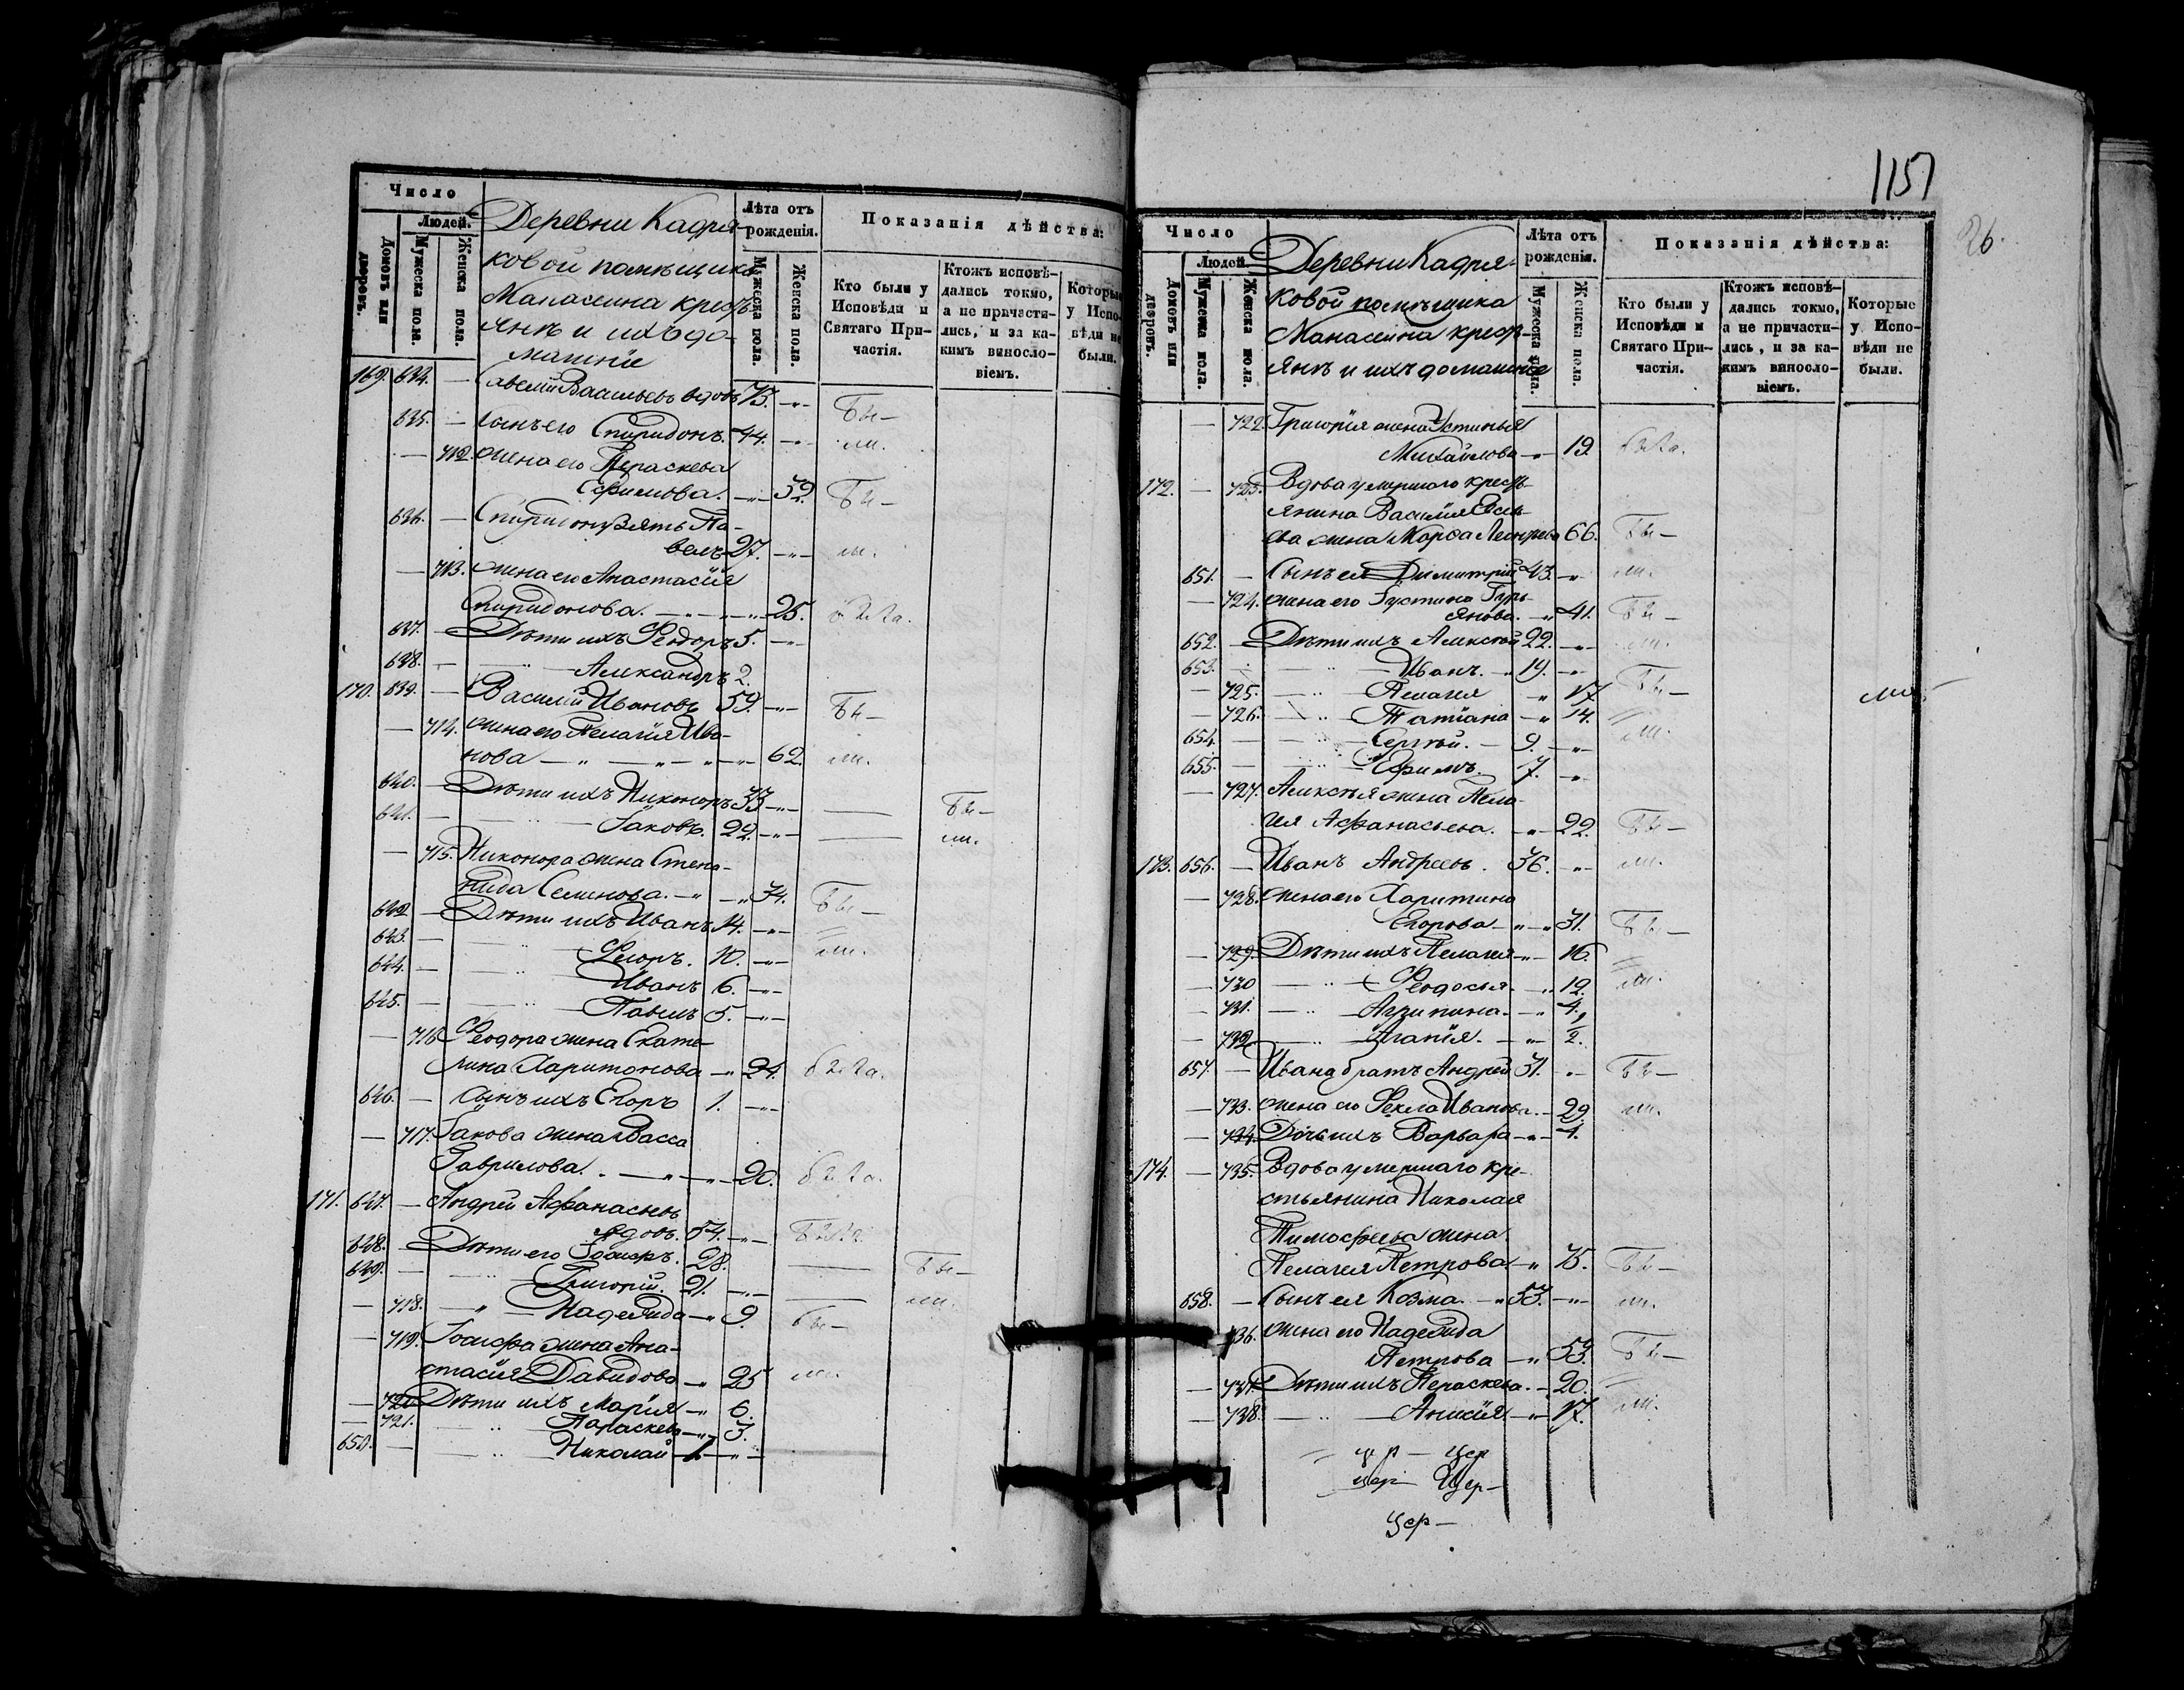 Число
Людей.
Домовъ или дворовъ.
Мужеска пола.
Женска пола.
Деревни Кадря-
ковой помѣщика
Манасеина кресть-
янѣ и ихъ до-
машніе
Лѣта отъ рожденія.
Мужеска пола.
Женска пола.
Показанія дѣйства:
Кто были у Исповѣди и Святаго Причастія.
Ктожъ исповѣ-
дались токмо,
а не причасти-
лись, и за ка-
кимъ виносло-
віемъ.
Которые
у Испо-
вѣди не
были.
169. 634. — Савелій Васильевъ вдовъ 73. —„— Бы-
635. — Сынъ его Спиридонъ. 44. —„— ли.
— 712. жена его Параскева
Ефимова. —„— 52. Бы-
636. — Спиридона зять Па-
велъ 27. —„— ли.
— 713. жена его Анастасія
Спиридонова. —„— 25. была.
637. — Дѣти ихъ Феодоръ 5. —„—
638. — —„— Александръ 2.
170. 639. — Василій Ивановъ 59. —„— Бы-
— 714. жена его Пелагія Ива-
нова —„— 62. ли.
640. — Дѣти ихъ Никоноръ 33 —„— — Бы-
641. — —„— Іаковъ. 22. —„— — ли.
— 715. Никонора жена Степа-
нида Семенова. —„— 34. Бы-
642 — Дѣти ихъ Иванъ 14. —„—
643. — —„— Феодоръ. 10. —„— ли.
644. — —„— Иванъ 6. —„—
645. — —„— Павелъ 5. —„—
— 716 Феодора жена Екате-
рина Харитонова —„ 24. была.
646. — Сынъ ихъ Егоръ 1. —„—
— 717. Іакова жена Васса
Гаврилова. —„— 20. была.
171. 647. — Андрей Афанасьевъ
вдовъ. 54. —„— Былъ
648. Дѣти его Іосифъ. 28. — Бы-
649. — —„— Григорій. 21. —„— — ли.
— 718. —„— Надежда —„ 9 бы-
— 719. Іосифа жена Ана-
стасія Давидова —„ 25 ли.
— 720 Дѣти ихъ Марія —„ 6.
— 721. —„— Параскева —„— 3.
650. — —„— Николай 1 —„—
1151
26.
Число
Людей.
Домовъ или дворовъ.
Мужеска пола.
Женска пола.
Деревни Кадря-
ковой помѣщика
Манасеина кресть-
янѣ и ихъ домашніе
Лѣта отъ рожденія.
Мужеска пола.
Женска пола.
Показанія дѣйства:
Кто были у Исповѣди и Святаго Причастія.
Ктожъ исповѣ-
дались токмо,
а не причасти-
лись, и за ка-
кимъ виносло-
віемъ.
Которые
у Испо-
вѣди не
были.
— 722. Григорія жена Устинья
Михайлова —„ 19. была.
172. — 723. Вдова умершаго кресть-
янина Василія
жена Марфа 66. Бы-
651. — Сынъ ея Димитрій 43. —„ ли.
— 724. жена его Іустина Гурь-
янова. —„ 41. Бы-
652. — Дѣти ихъ Алексѣй 22. —„— ли.
653. —„— Иванъ. —„ 19. —„
— 725. —„— Пелагея „ 17. Бы-
— 726. —„— Татіана —„ 14.
654. — —„— Сергѣй. — 9. —„— ли.
655. — —„— Ефимъ. 7. —„
— 727. Алексѣя жена Пела-
гея Афанасьева. —„— 22. Бы-
173. 656. — Иванъ Андреевъ. 36. —„ ли.
— 728. жена его Харитина
Егорова —„—„ 31. Бы-
— 729. Дѣти ихъ Пелагея —„ 16.
— 730 —„— Феодосья. —„ 12. ли.
— 731. —„— Агрипина. —„ 4.
— 732 —„— Агапія. —„— 1/2.
657. — Ивана братъ Андрей 31. —„ Бы-
— 733. жена его Фекла Иванова. — 29 ли.
— 734. Дочь ихъ Варвара —„— 4.
174. — 735. Вдова умершаго кре-
стьянина Николая
Тимофеева жена
Пелагея Петрова —„ 75. Бы-
658. — Сынъ ея Козма. —„ 53. —„— ли.
736. жена его Надежда
Петрова —„ 53. Бы-
— 737. Дѣти ихъ Параскева. — 20.
— 738. —„— Анисія —„ 17. ли.